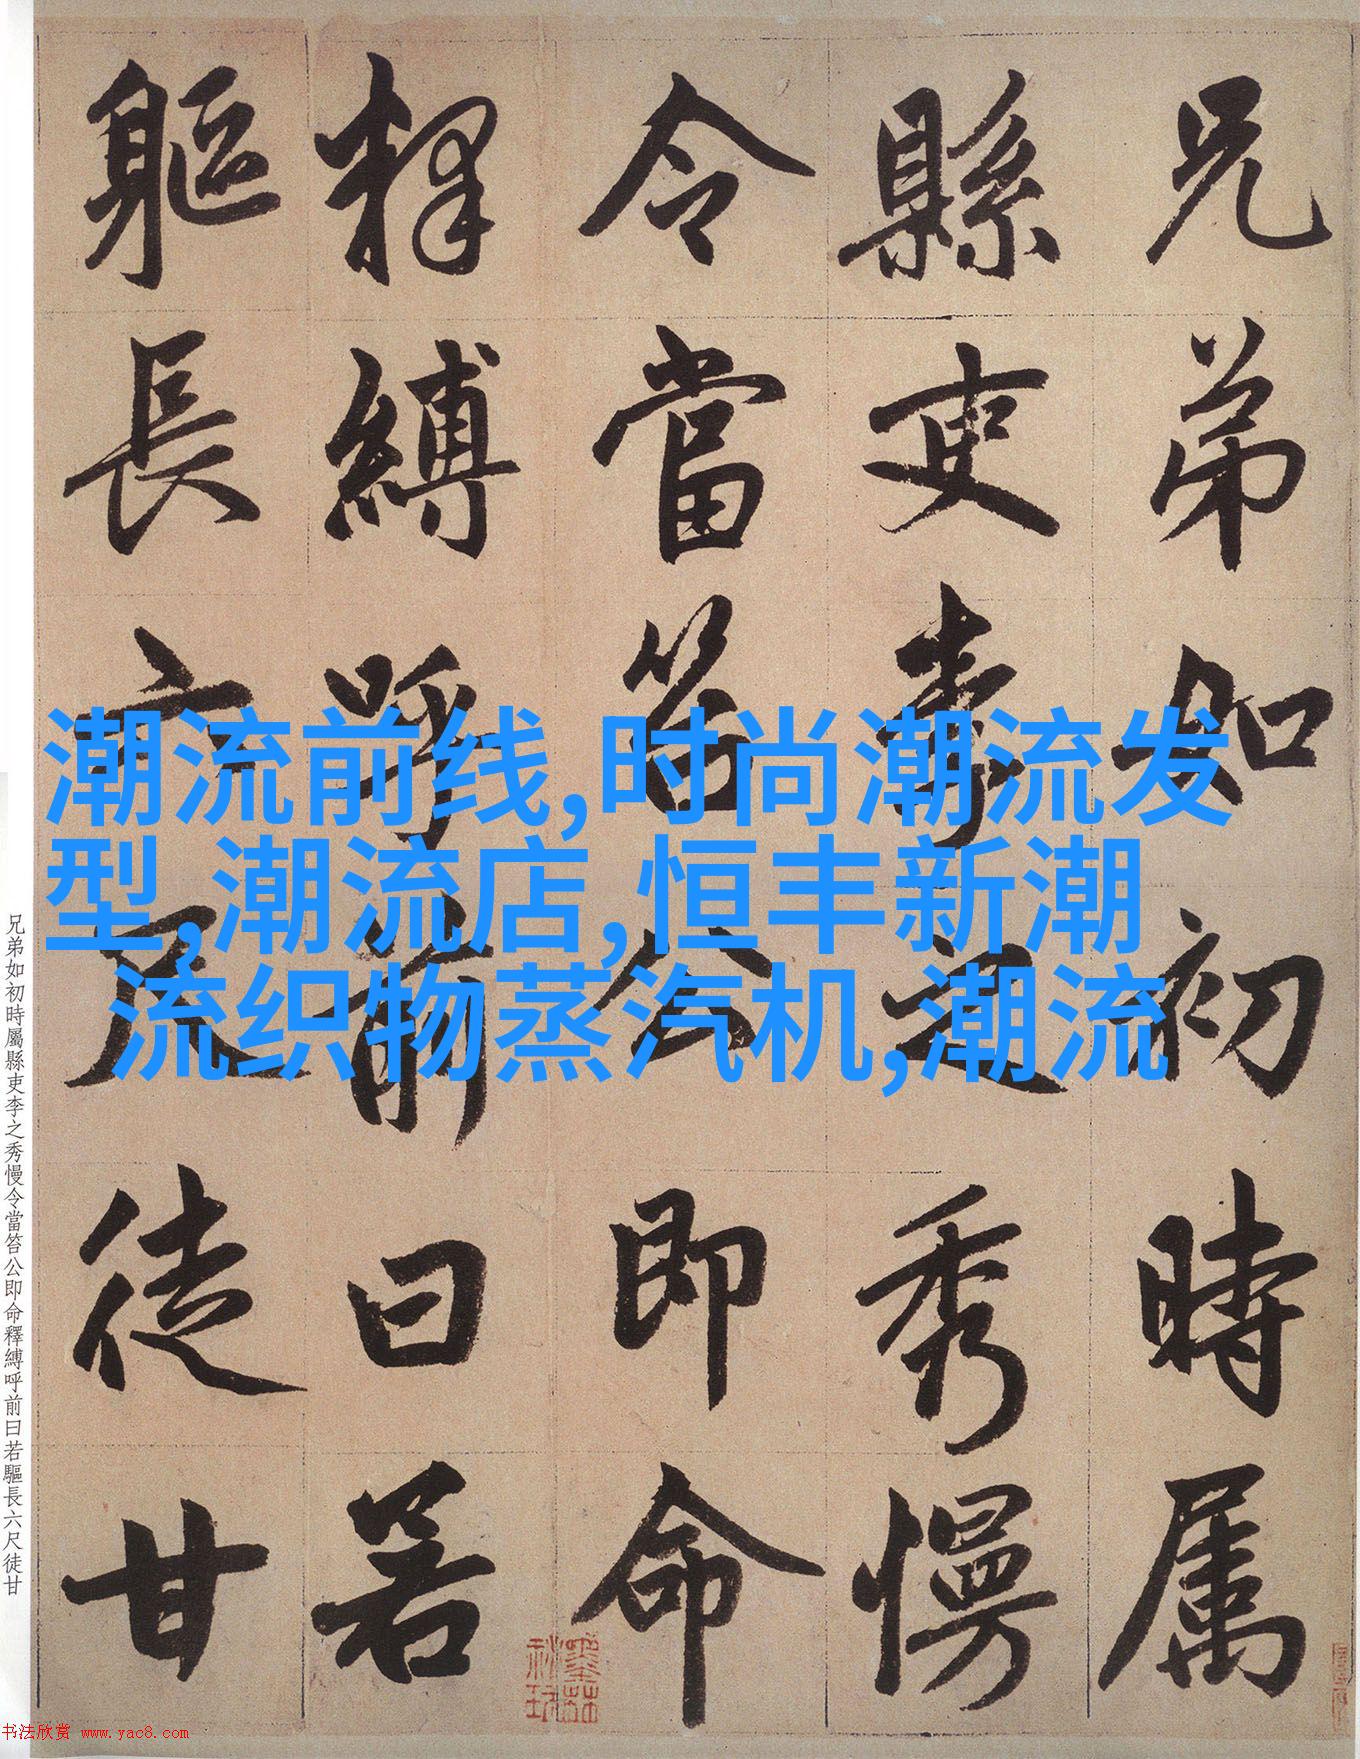 兄弟如初時属
縣吏李之秀慢
令當笞公即命
釋縛呼前曰若
軀長六尺徒甘
潮流前线,时尚潮流发
型,潮流店,恒丰新潮
流织物蒸汽机,潮流
兄弟如初時屬縣吏李之秀慢令當笞公即命釋縛呼前曰若驅長六尺徒甘
书法欣赏 www.yac8.com